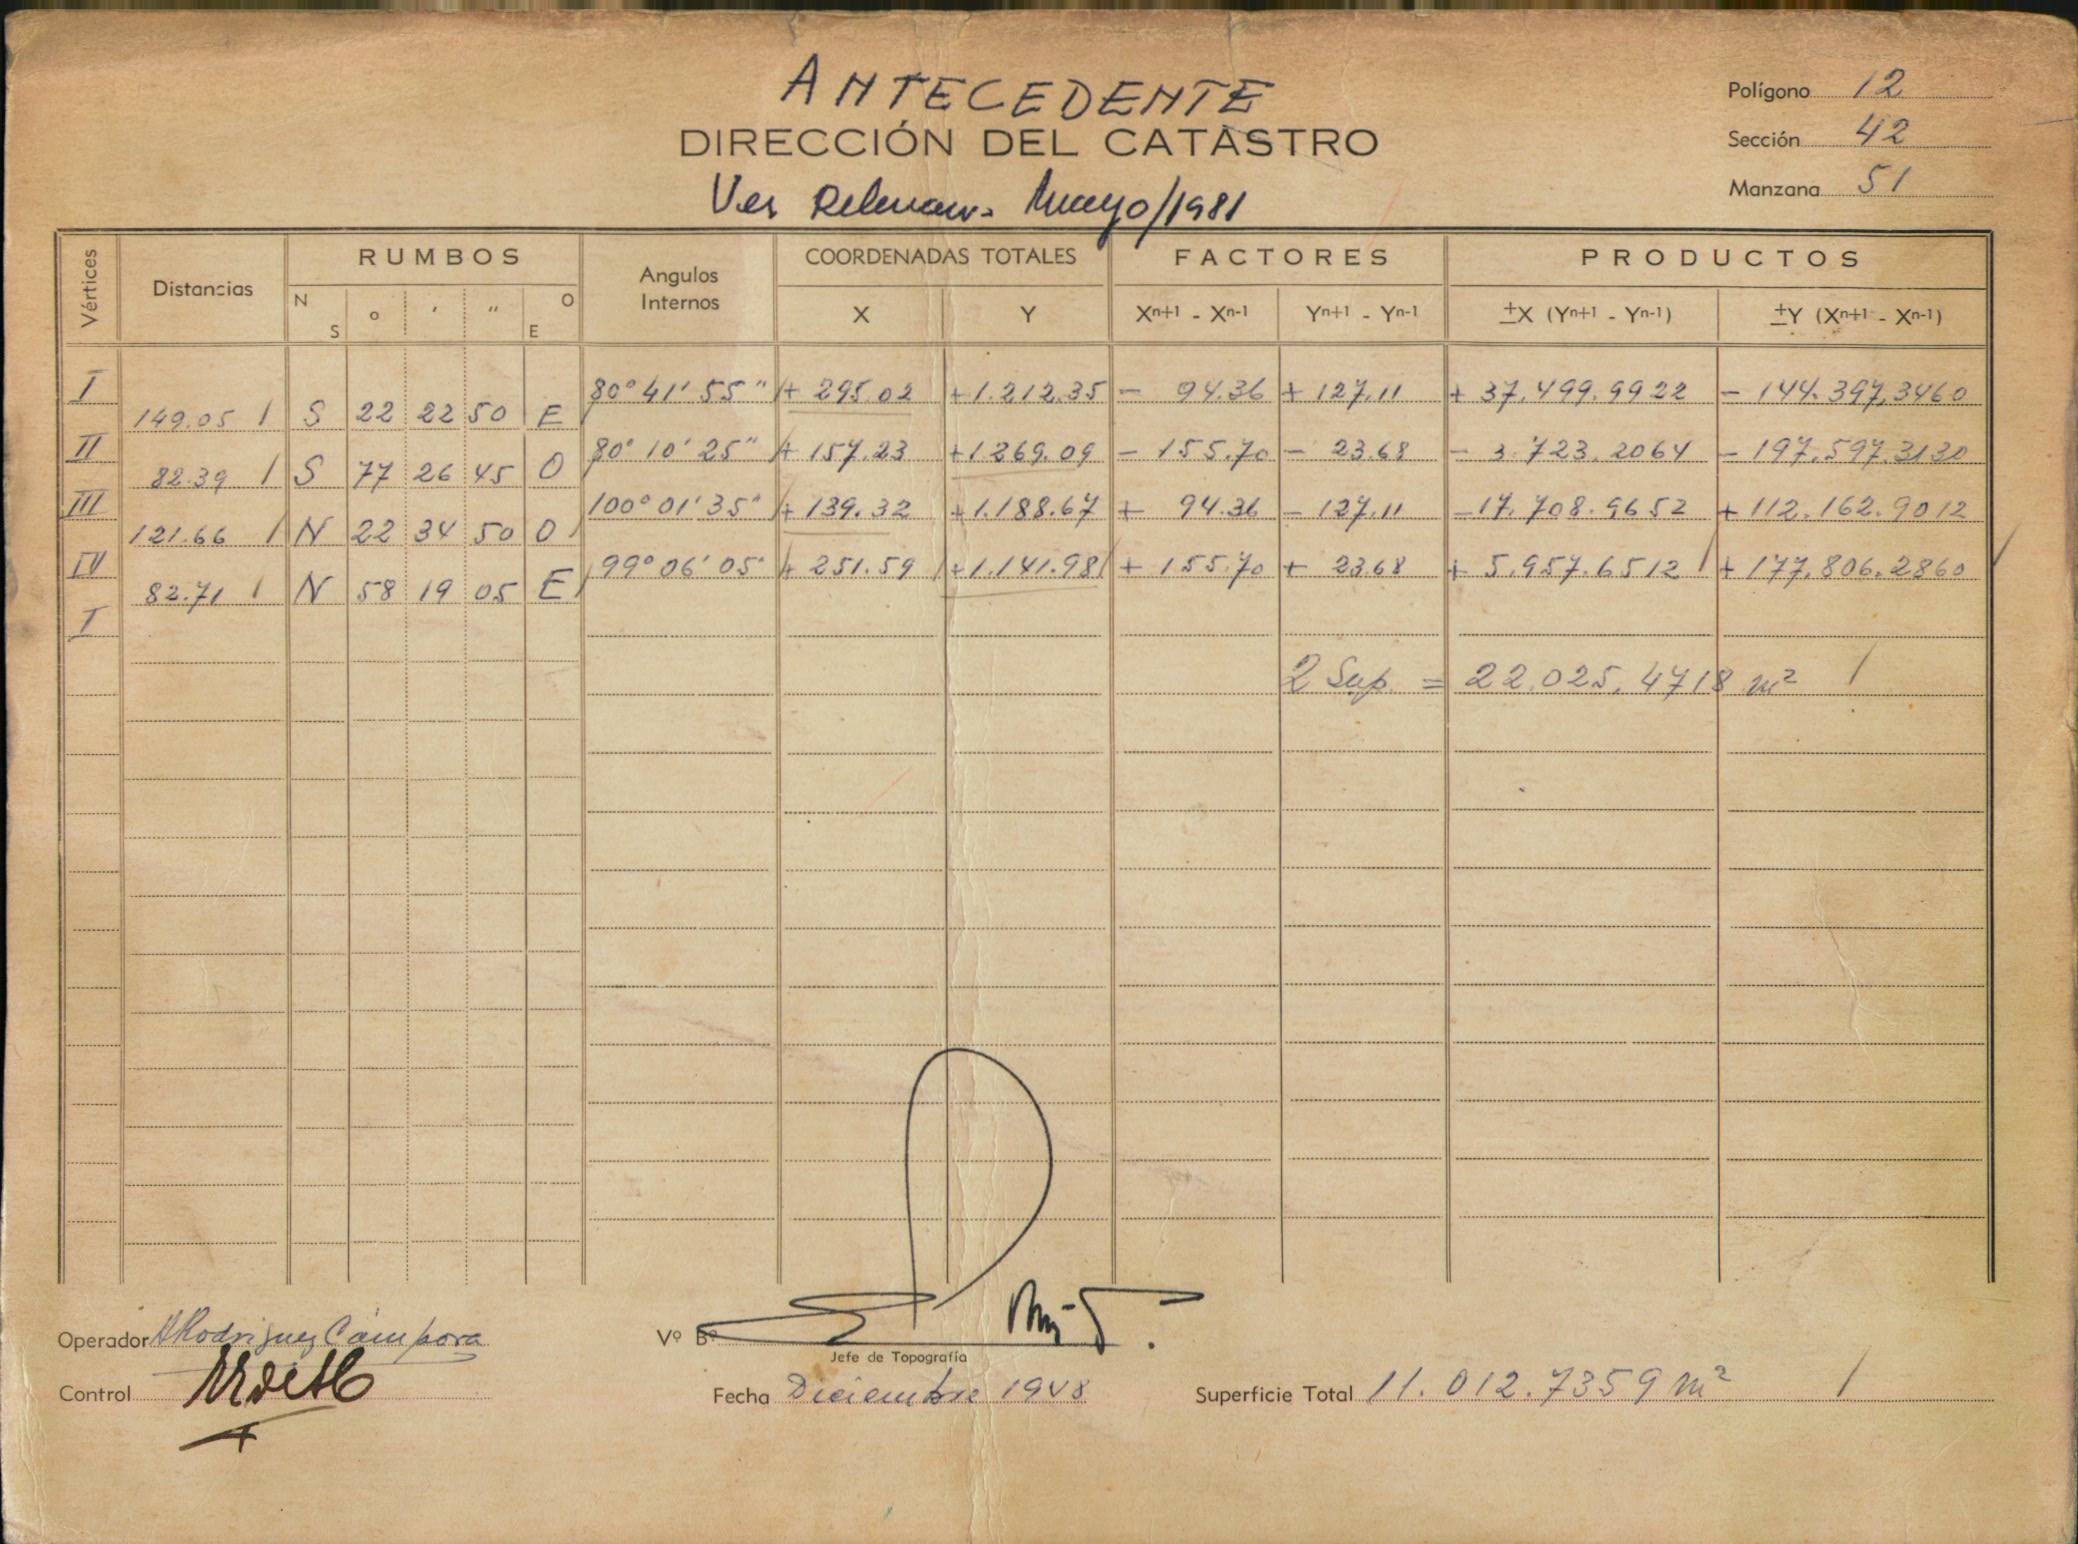 ANTECEDENTE
DIRECCIÓN DEL CATASTRO
Ver Relevam. Mayo/1981
Polígono 12
Sección 42
Manzana 51
Vértices Distancias RUMBOS Angulos Internos COORDENADAS TOTALES FACTORES PRODUCTOS
N S ° ' " O E X Y Xn+1 - Xn-1 Yn+1 - Yn-1 ±X (Yn+1 - Yn-1) ±Y (Xn+1 - Xn-1)
I 80° 41' 55" + 295.02 +1.212.35 - 94.36 + 127.11 + 37.499.9922 - 144.397.3460
149.05 / S 22 22 50 E
II 80° 10' 25" + 157.23 +1.269.09 - 155.70 - 23.68 - 3.723.2064 - 197.597.3130
82.39 / S 77 26 45 O
III 100° 01' 35" + 139.32 +1.188.67 + 94.36 - 127.11 -17.708.9652 + 112.162.9012
121.66 / N 22 34 50 O
IV 99° 06' 05" + 251.59 +1.141.98 + 155.70 + 23.68 + 5.957.6512 / + 177.806.2860 /
82.71 / N 58 19 05 E
I
2 Sup. = 22.025.4718 m² /
Operador A Rodriguez Cámpora
Vº Bº
Jefe de Topografía
Control
Fecha Diciembre 1948
Superficie Total 11.012.7359 m² /